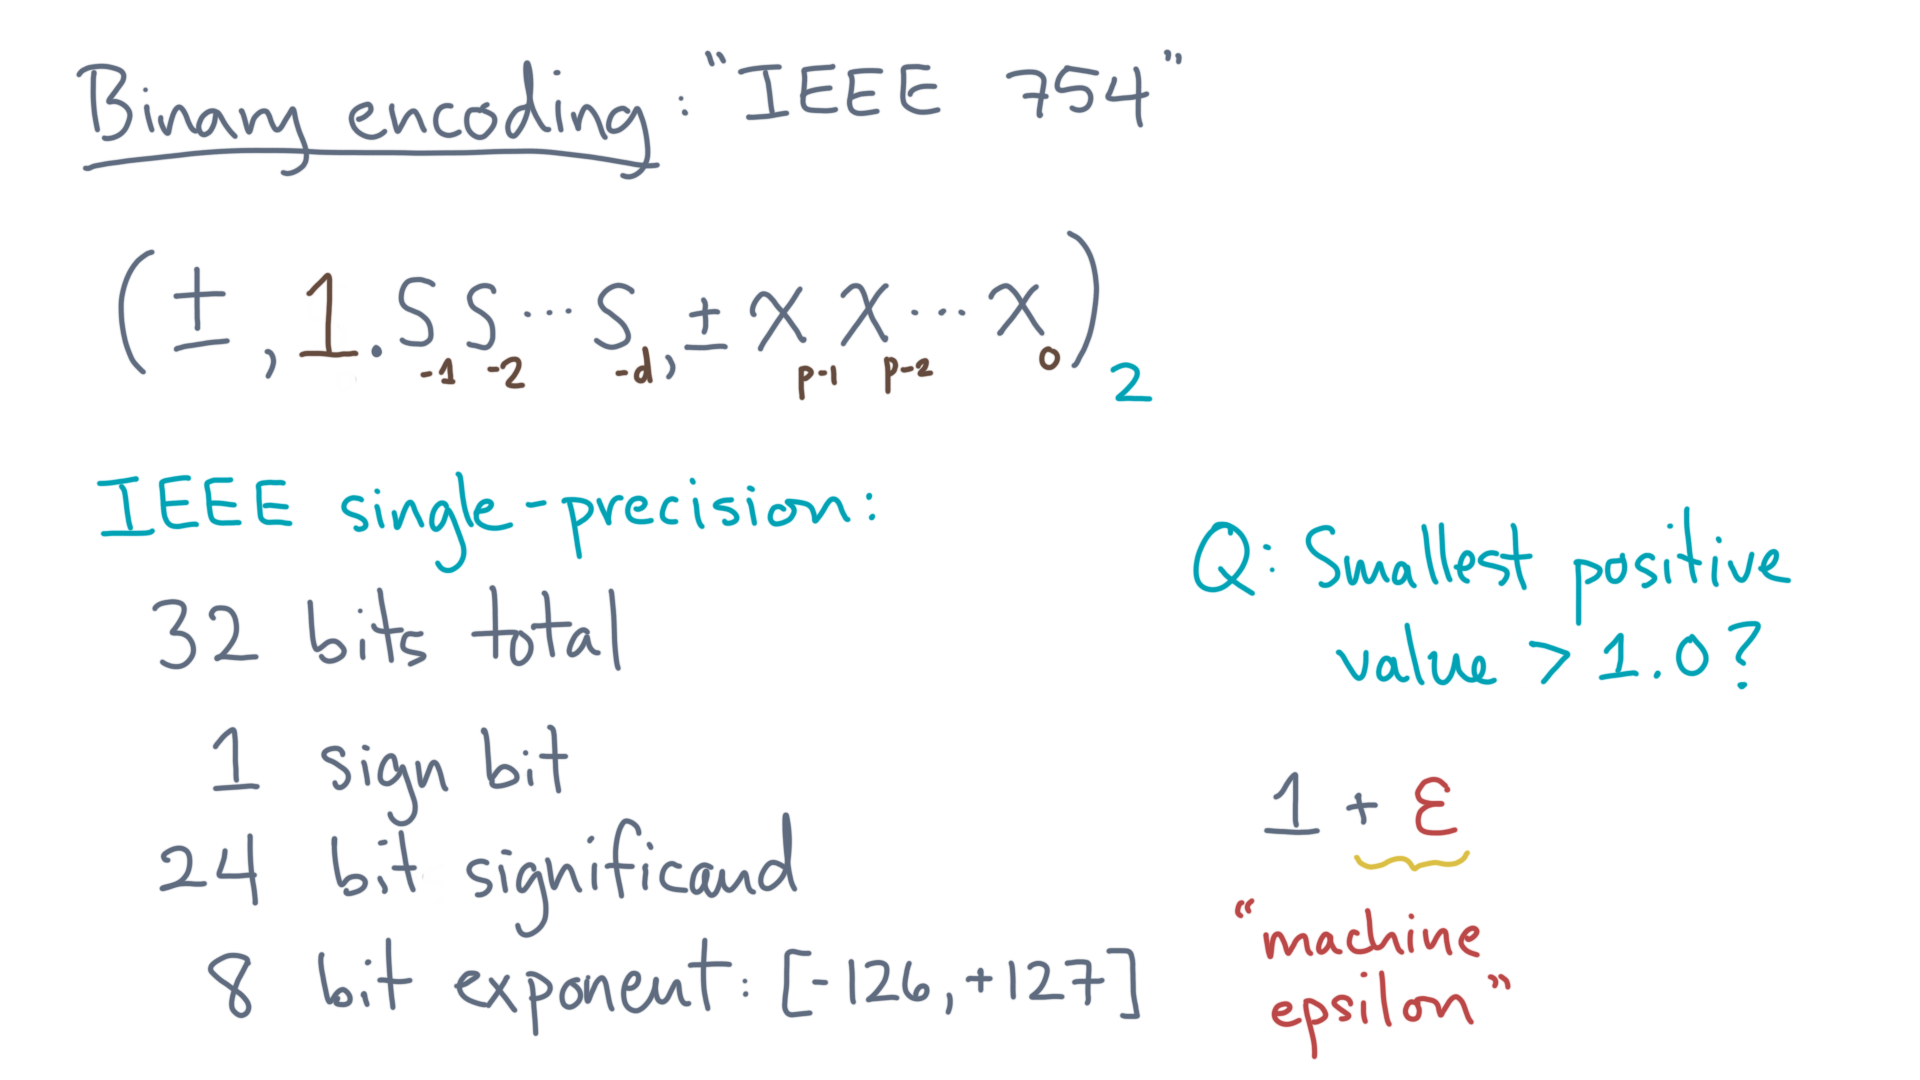 Binary encoding: "IEEE 754"
(±, 1.s₋₁s₋₂...s₋d, ±xₚ₋₁xₚ₋₂...x₀)₂
IEEE single-precision:
32 bits total
1 sign bit
24 bit significand
8 bit exponent: [-126, +127]
Q: Smallest positive
value > 1.0?
1 + ε
"machine
epsilon"